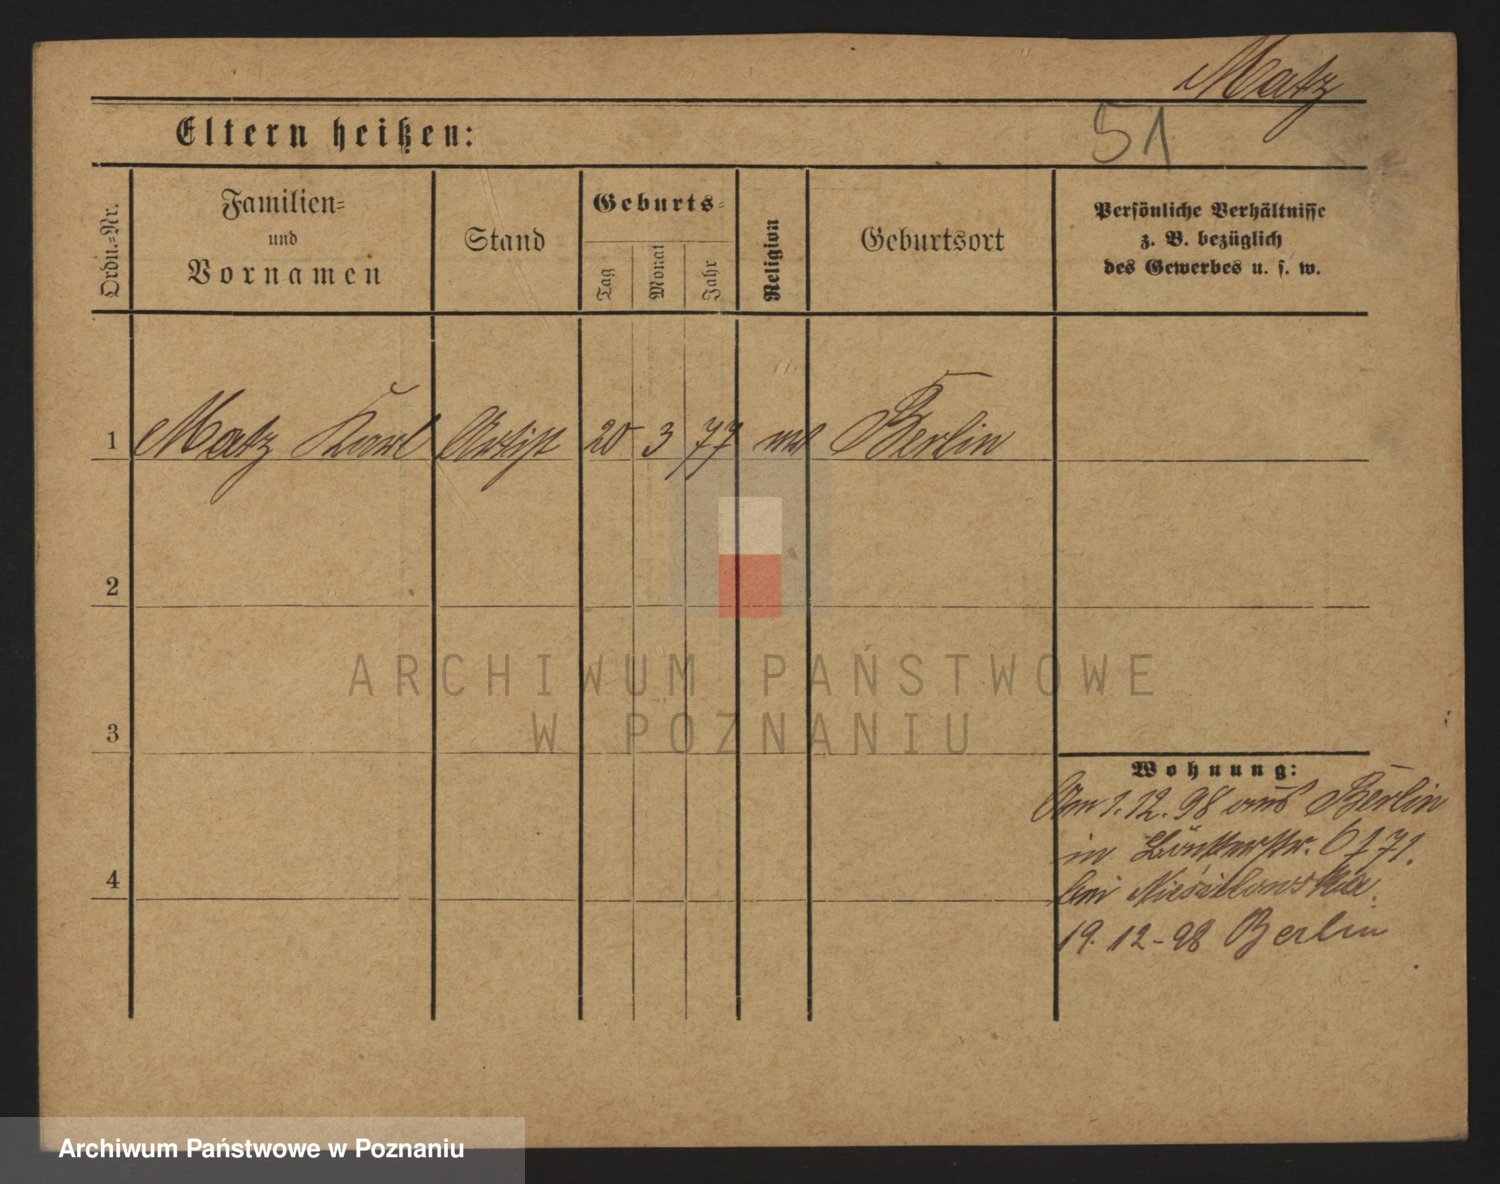 Matz
Eltern heißen:
51
Ordn.=Nr.
Familien=
und
Vornamen
Stand
Geburts=
Tag
Monat
Jahr
Religion
Geburtsort
Persönliche Verhältnisse
z. B. bezüglich
des Gewerbes u. s. w.
1 Matz Karl Artist 20 3 77 Berlin
2
3
4
ARCHIWUM PAŃSTWOWE
W POZNANIU
Wohnung:
Am 1.12.98 aus Berlin
in
bei
19.12-98 Berlin
Archiwum Państwowe w Poznaniu